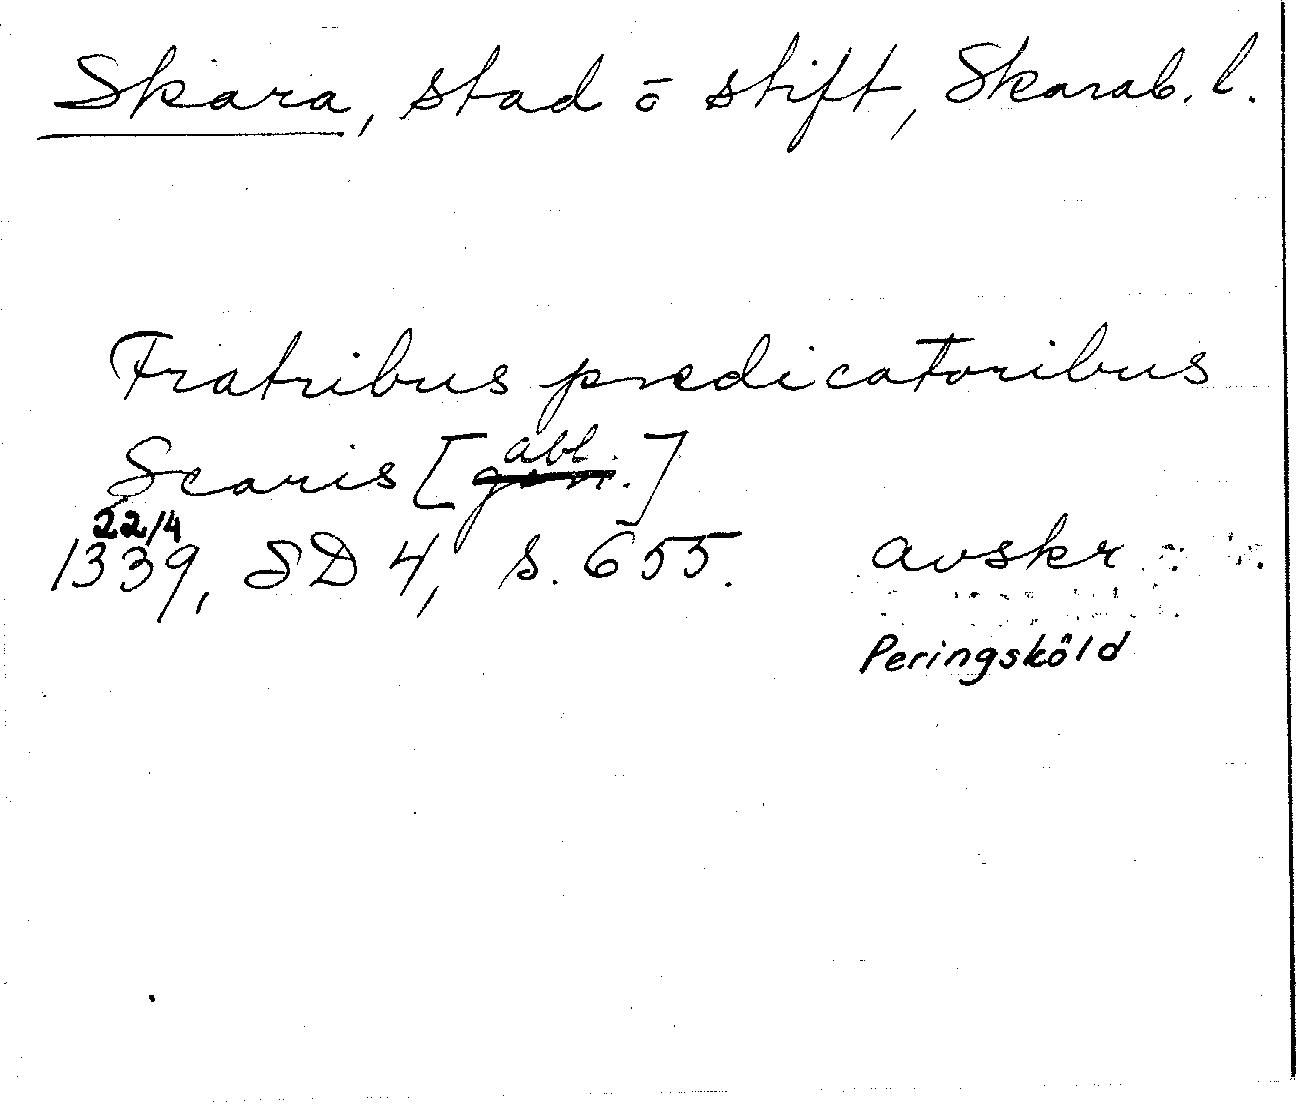 Skara, stad o stift, Skarab. l.
Fratribus predicatoribus
Scaris [abl.]
22/4
1339, SD 4, s. 655. avskr
Peringsköld